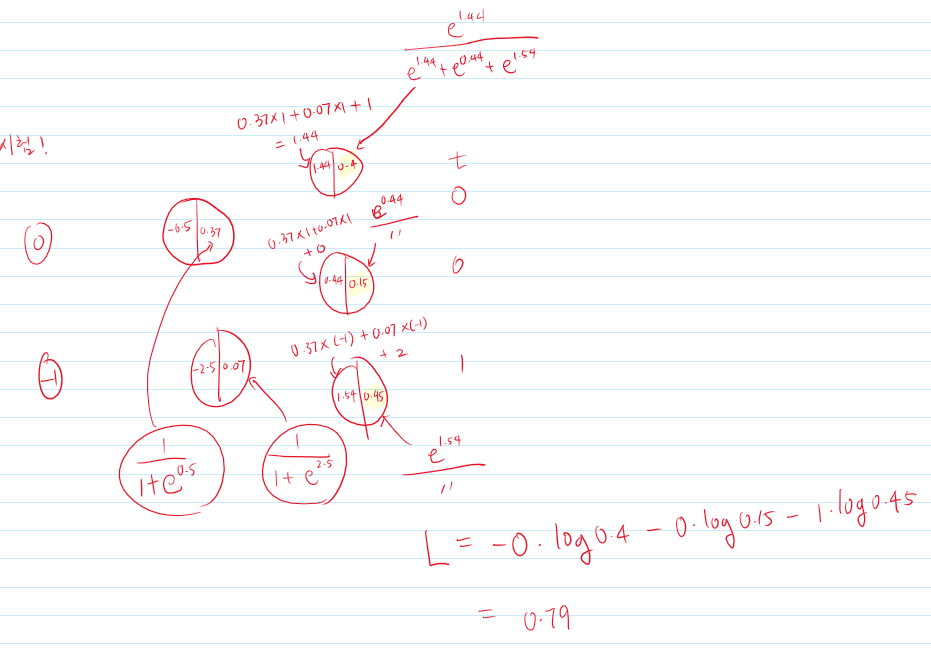 e^1.44
e^1.44 + e^0.44 + e^1.54
0.37×1+0.07×1+1
= 1.44
1.44 0.4
t
0
-0.5 0.37
0
0.37×1+0.07×1
+0
e^0.44
"
0.44 0.15
0
0.37×(-1)+0.07×(-1)
+2
-2.5 0.07
-1
1.54 0.45
1
1
1+e^0.5
1
1+e^2.5
e^1.54
"
L = -0·log0.4 - 0·log0.15 - 1·log0.45
= 0.79